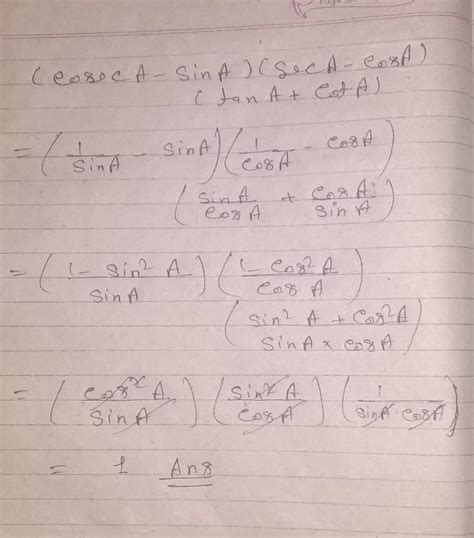 (cosec A - sin A) (sec A - cos A)
(tan A + cot A)
= (1/sin A - sin A) (1/cos A - cos A)
(sin A/cos A + cos A/sin A)
= (1 - sin² A/sin A) (1 - cos² A/cos A)
(sin² A + cos² A/sin A × cos A)
= (cos² A/sin A) (sin² A/cos A) (1/sin A · cos A)
= 1 Ans